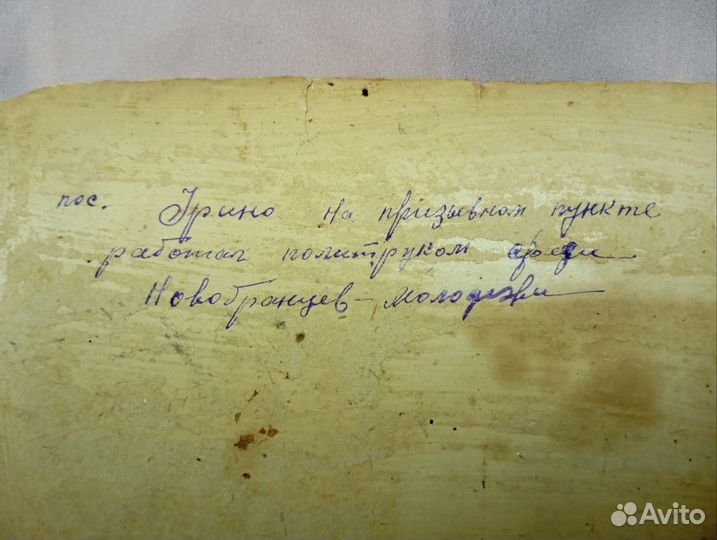 пос. Урино на призывном пункте
работал политруком среди
Новобранцев-молодежи
Avito